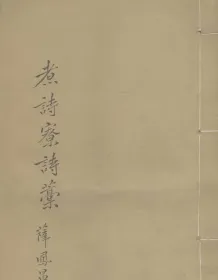 煮詩寮詩藁
薛鳳昌